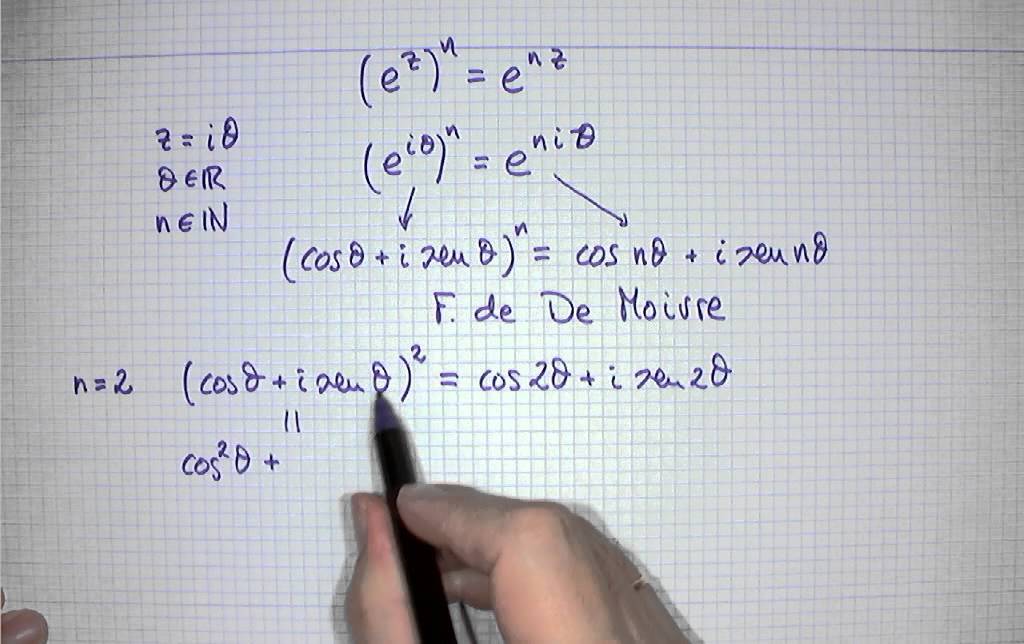 (e^z)^n = e^{nz}
z = iθ
(e^{iθ})^n = e^{niθ}
θ ∈ ℝ
n ∈ ℕ
(cosθ + i sen θ)^n = cos nθ + i sen nθ
F. de De Moivre
n = 2 (cosθ + i sen θ)^2 = cos 2θ + i sen 2θ
||
cos^2 θ +